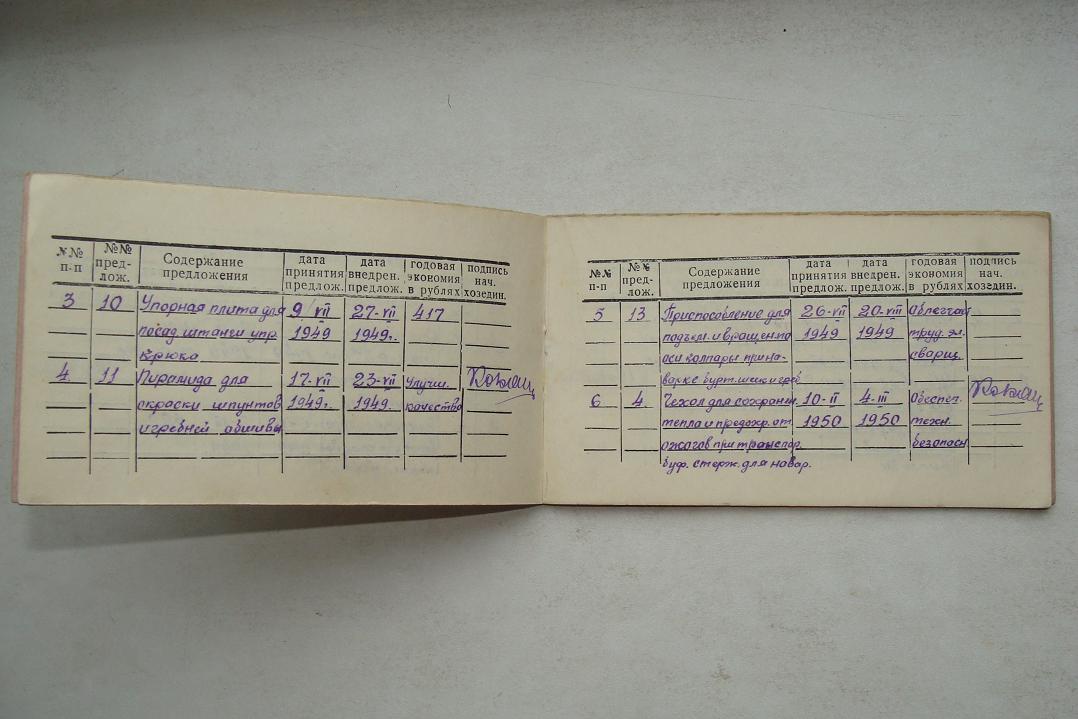 №№ п-п №№ пред-лож. Содержание предложения дата принятия предлож. дата внедрен. предлож. годовая экономия в рублях подпись нач. хозедин.
3 10 Упорная плита для 9/VII 27-VII 417
посад. штанги упр. 1949 1949г.
крюка
4 11 Пирамида для 17-VII 23-VII Улучш.
окраски шпунтов 1949г. 1949. качества
и гребней обшивы
№№ п-п №№ пред-лож. Содержание предложения дата принятия предлож. дата внедрен. предлож. годовая экономия в рублях подпись нач. хозедин.
5 13 Приспособление для 26-VII 20-VIII Облегчает
подъем. и вращен. по 1949 1949 труд эл.
оси колпары при на- сварщ.
варке бурт. шеек и греб
6 4 Чехол для сохранен. 10-II 4-III Обеспеч.
тепла и предохр. от 1950 1950 техн.
ожогов при транспор. безопасн
буф. стерж. для навар.